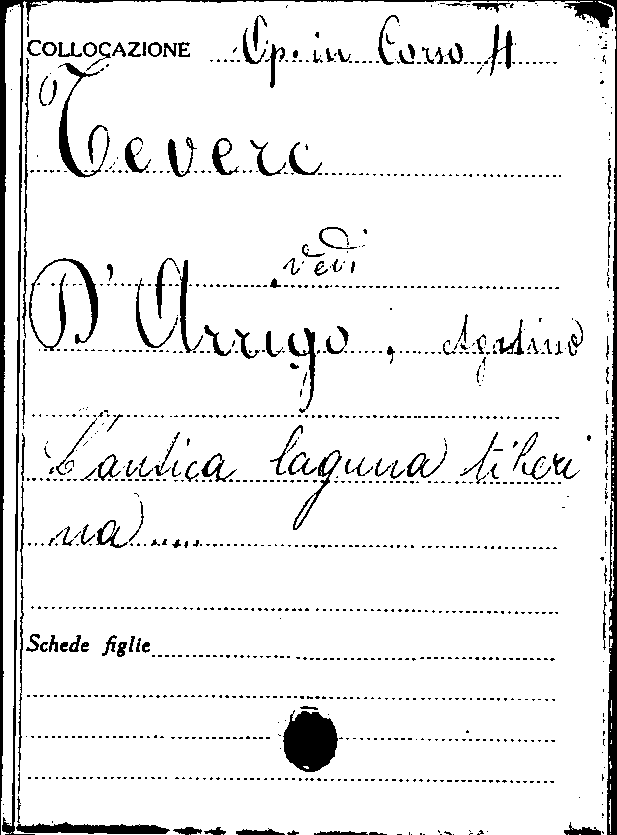 COLLOCAZIONE Op. in Corso 4
Tevere
vedi
D'Arrigo, Agatino
L'antica laguna tiberi
na.....
Schede figlie